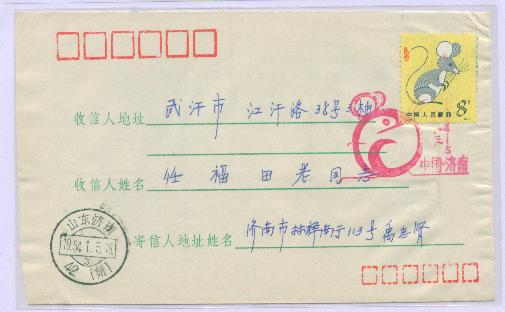 中国人民邮政
8分
收信人地址 武汗市 江汗路 38号3栋
中国·济南
收信人姓名 任福田老同志
山东济南
1984.1.5.
42
寄信人地址姓名 济南市林祥南街113号禹忠贤